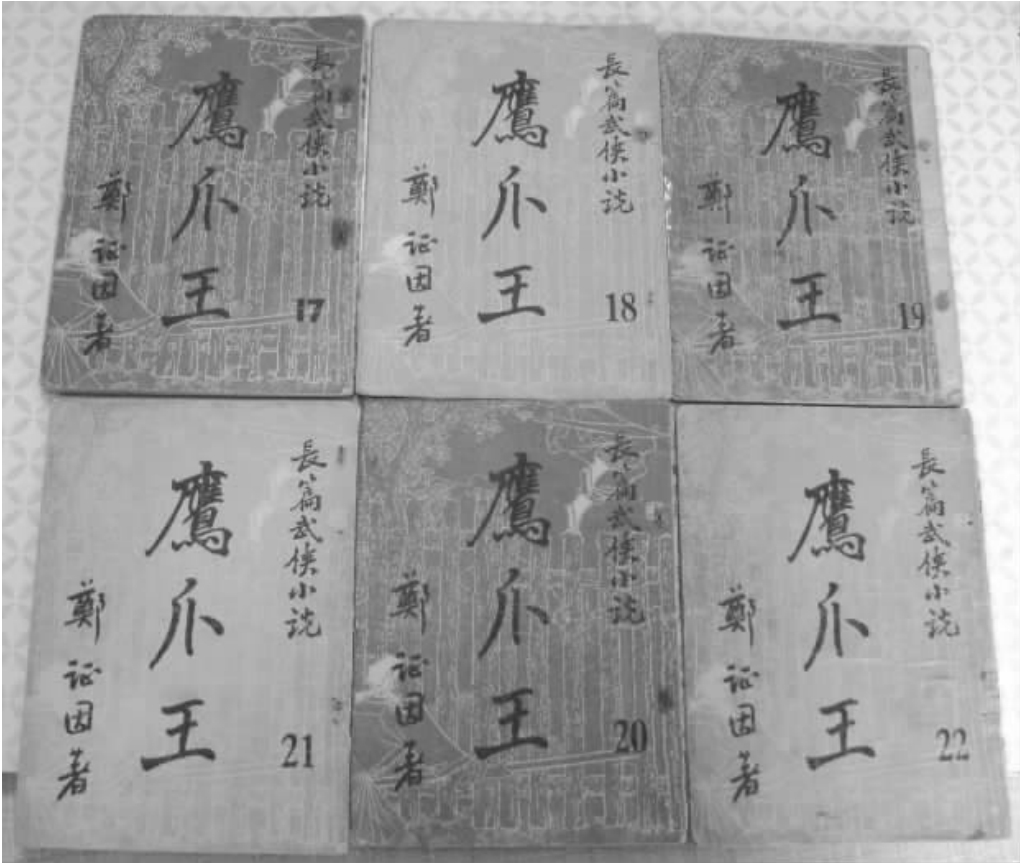 長篇武俠小说
鷹爪王
鄭证因著
17
長篇武俠小说
鷹爪王
鄭证因著
18
長篇武俠小说
鷹爪王
鄭证因著
19
長篇武俠小说
鷹爪王
鄭证因著
21
長篇武俠小说
鷹爪王
鄭证因著
20
長篇武俠小说
鷹爪王
鄭证因著
22